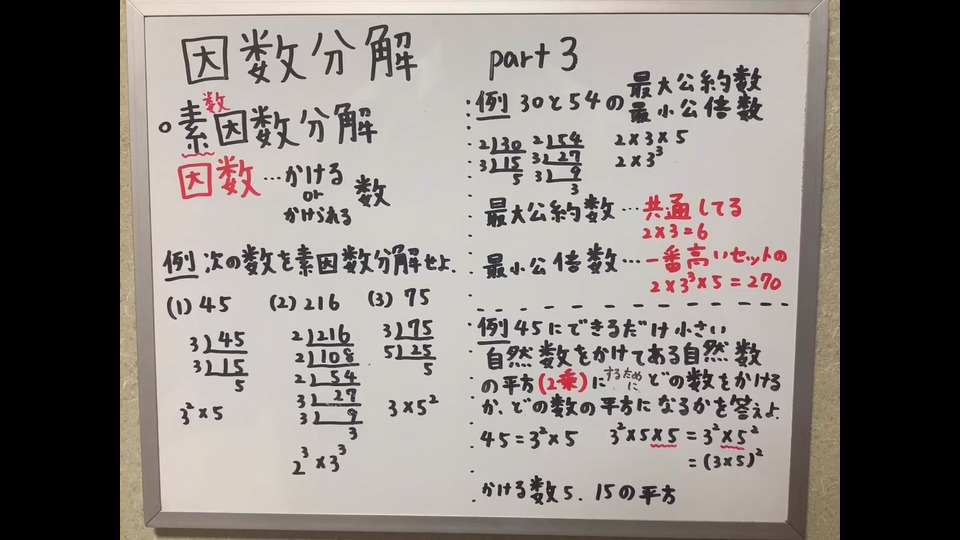 因数分解 part 3
数
○素因数分解
因数…かける
or
かけられる
数
例 次の数を素因数分解せよ.
(1) 45 (2) 216 (3) 75
3 45
3 15
5
3²×5
2 216
2 108
2 54
3 27
3 9
3
2³×3³
3 75
5 25
5
3×5²
例 30と54の 最大公約数
最小公倍数
2 30
3 15
5
2 54
3 27
3 9
3
2×3×5
2×3³
最大公約数…共通してる
2×3=6
最小公倍数…一番高いセットの
2×3³×5=270
例 45にできるだけ小さい
自然数をかけてある自然数
の平方(2乗)にするために どの数をかける
か、どの数の平方になるかを答えよ.
45=3²×5 3²×5×5=3²×5²
=(3×5)²
かける数5、15の平方